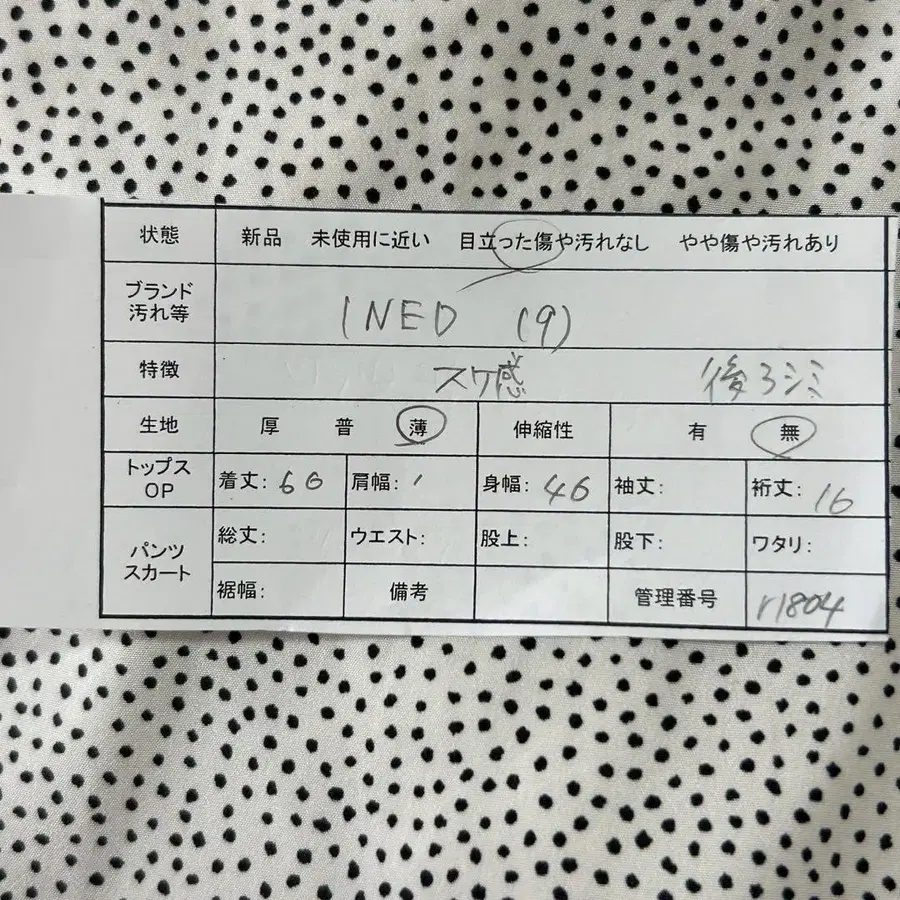 状態 新品 未使用に近い 目立った傷や汚れなし やや傷や汚れあり
ブランド
汚れ等
INED (9)
特徴 スケ感 後ろシミ
生地 厚 普 薄 伸縮性 有 無
トップス
OP
着丈: 60 肩幅: 身幅: 46 袖丈: 裄丈: 16
パンツ
スカート
総丈: ウエスト: 股上: 股下: ワタリ:
裾幅: 備考 管理番号 r1804